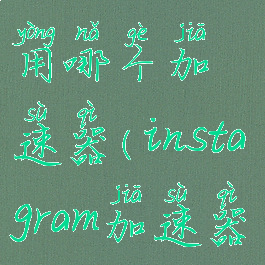 yòng nǎ gè jiā
用哪个加
sù qì
速器(insta
jiā sù qì
gram加速器